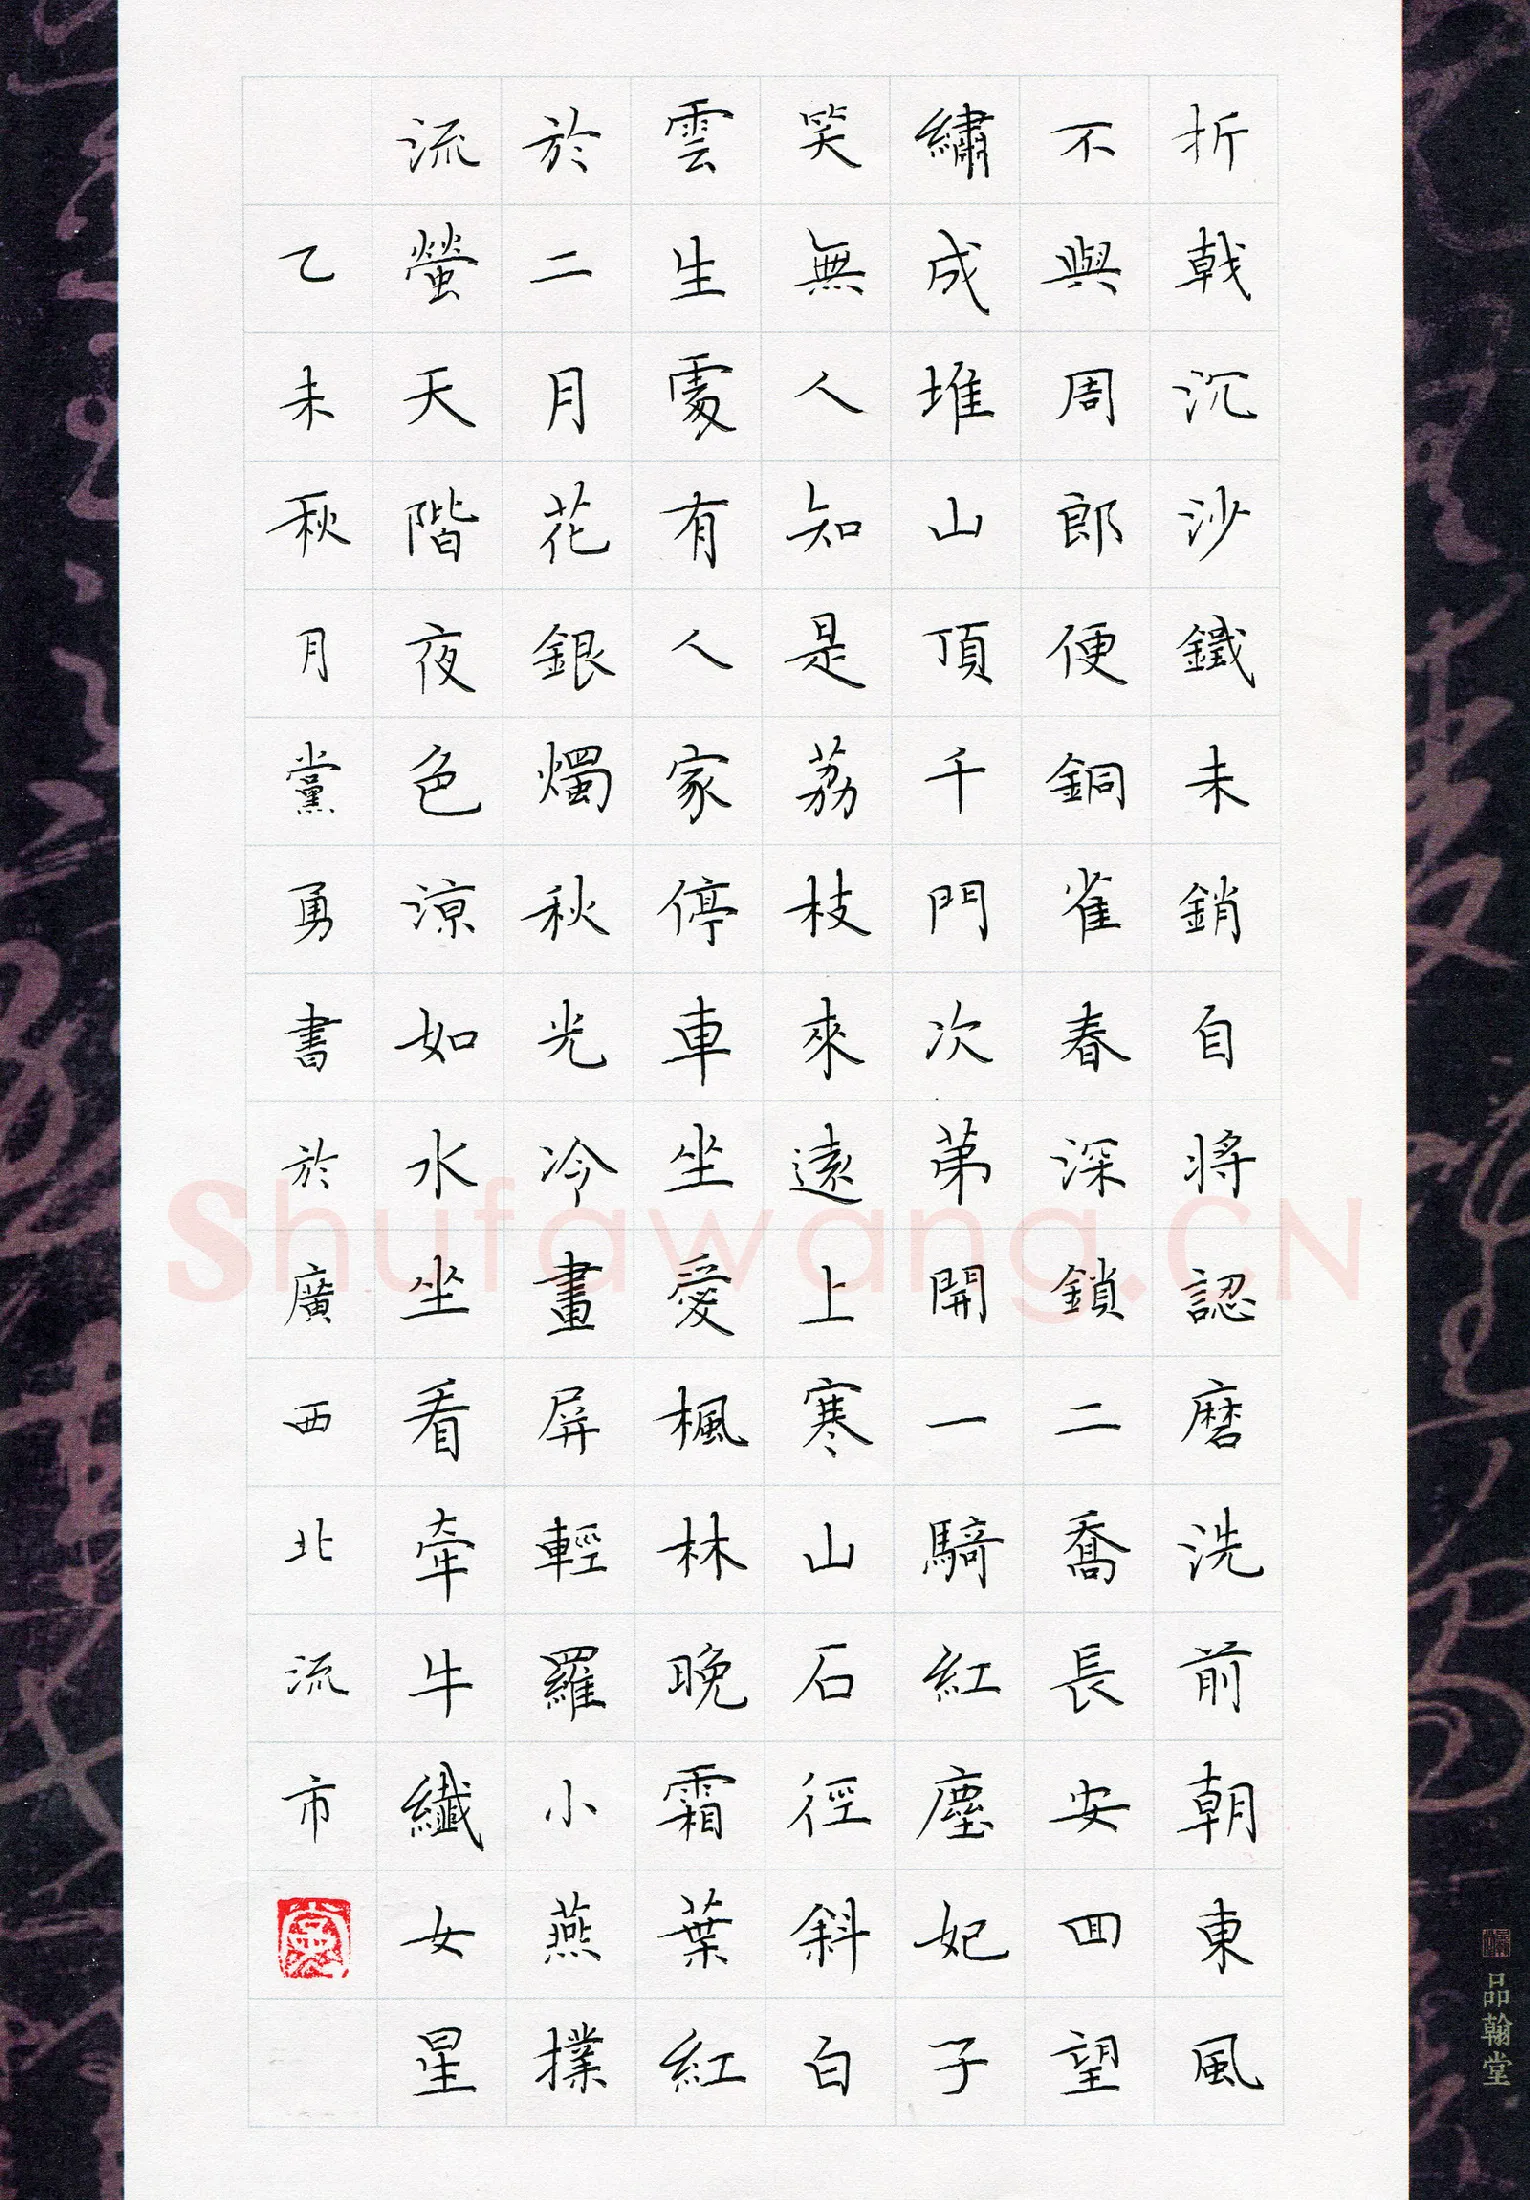 折戟沉沙鐵未銷自將認磨洗前朝東風
不與周郎便銅雀春深鎖二喬長安回望
繡成堆山頂千門次第開一騎紅塵妃子
笑無人知是荔枝來遠上寒山石徑斜白
雲生處有人家停車坐愛楓林晚霜葉紅
於二月花銀燭秋光冷畫屏輕羅小燕撲
流螢天階夜色涼如水坐看牽牛織女星
乙未秋月黨勇書於廣西北流市
品翰堂
Shufawang.CN